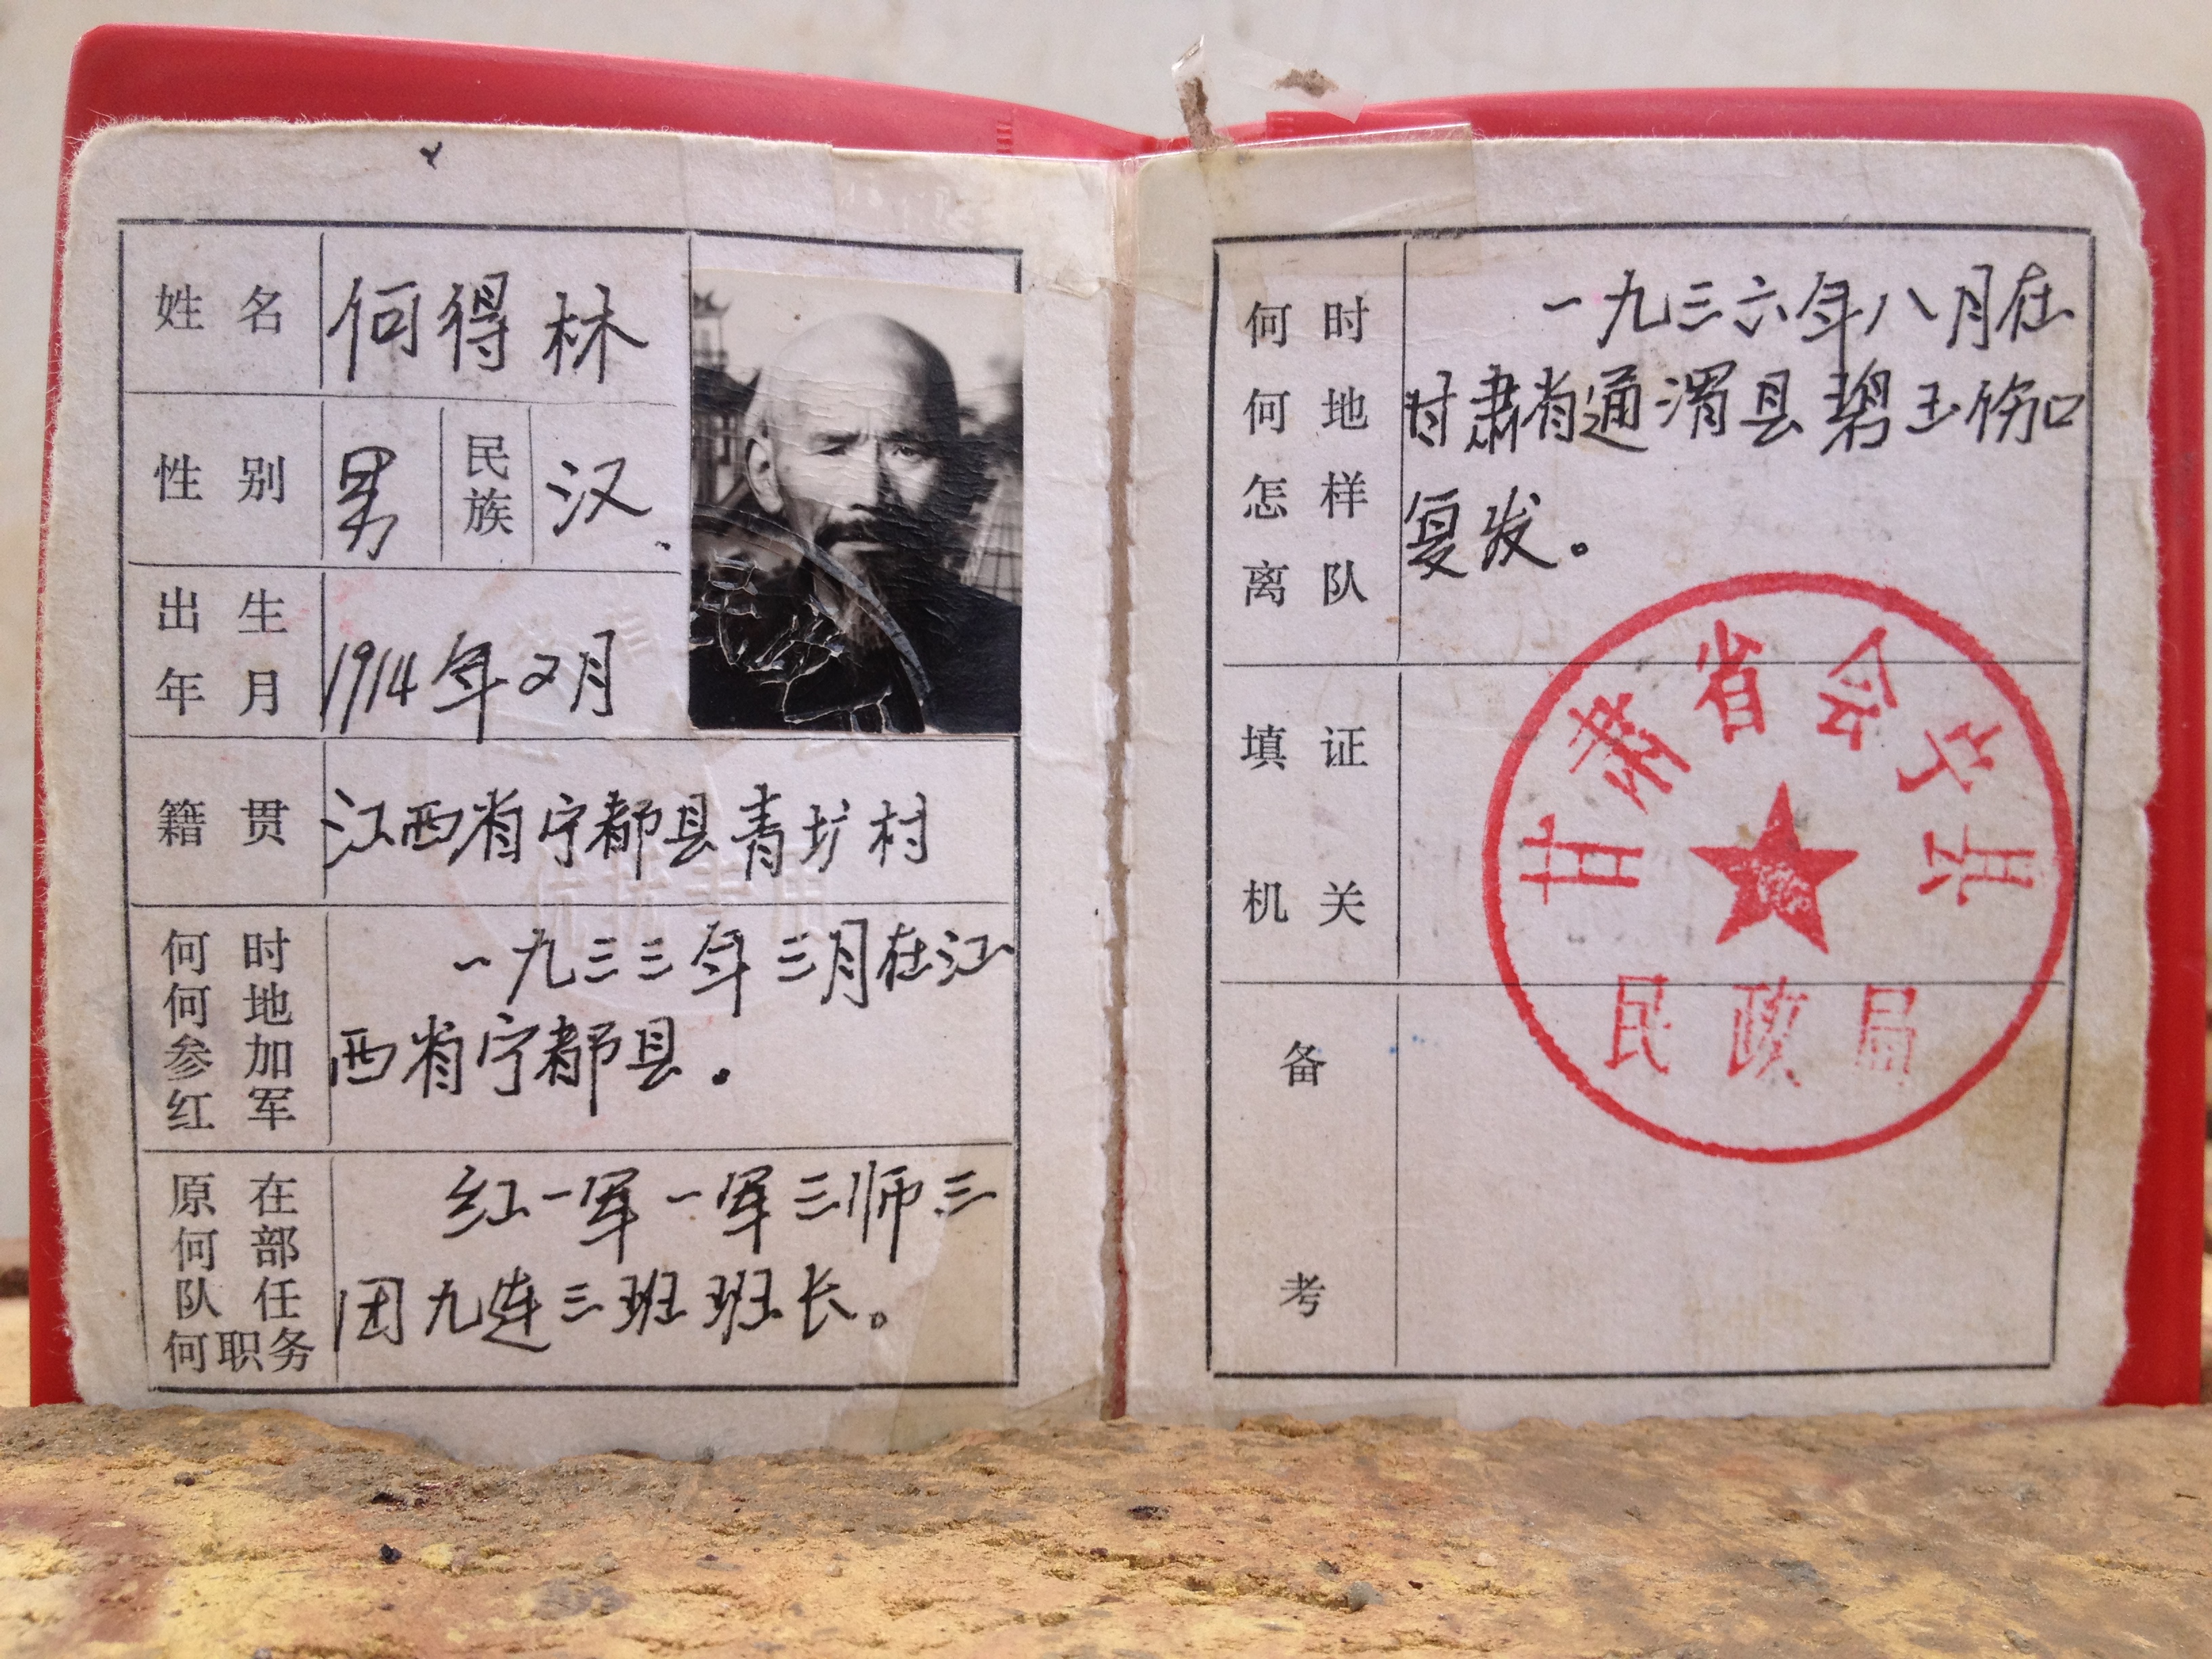 姓名 何得林
性别 男 民族 汉
出生年月 1914年2月
籍贯 江西省宁都县青圹村
何时何地参加红军
一九三三年三月在江
西省宁都县.
原在何部队任何职务
红一军一军三师三
团九连三班班长。
何时何地怎样离队
一九三六年八月在
甘肃省通渭县碧玉伤口
复发。
填证机关
甘肃省会宁县
民政局
备考